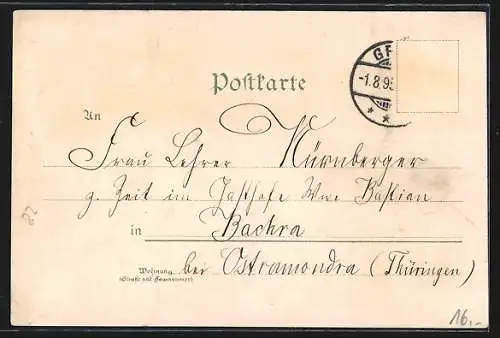 Postkarte
-1.8.9
An
Frau Lehrer Nürnberger
z. Zeit im Gasthofe Ww. Bastian
in Bachra
Wohnung bei Ostramondra (Thüringen)
(Straße und Hausnummer)
22
16,-